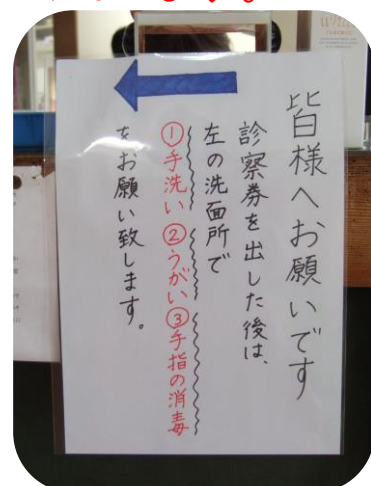 皆様へお願いです
診察券を出した後は、
左の洗面所で
①手洗い②うがい③手指の消毒
をお願い致します。